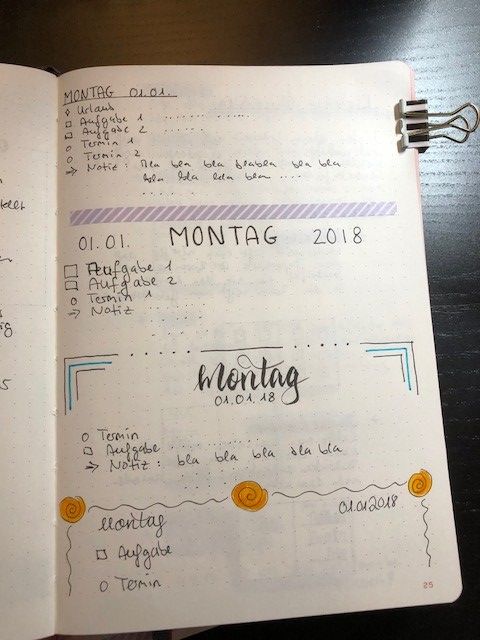 MONTAG 01.01.
◊ Urlaub
□ Aufgabe 1 ..........
□ Aufgabe 2 ......
○ Termin 1
○ Termin 2
→ Notiz : Bla bla bla blabla bla bla
bla bla bla bla ....
......
01.01. MONTAG 2018
□ Aufgabe 1
□ Aufgabe 2
○ Termin 1 .......
→ Notiz .......
Montag
01.01.18
○ Termin
□ Aufgabe ..........
→ Notiz : bla bla bla bla bla
01.01.2018
Montag
□ Aufgabe
○ Termin
25